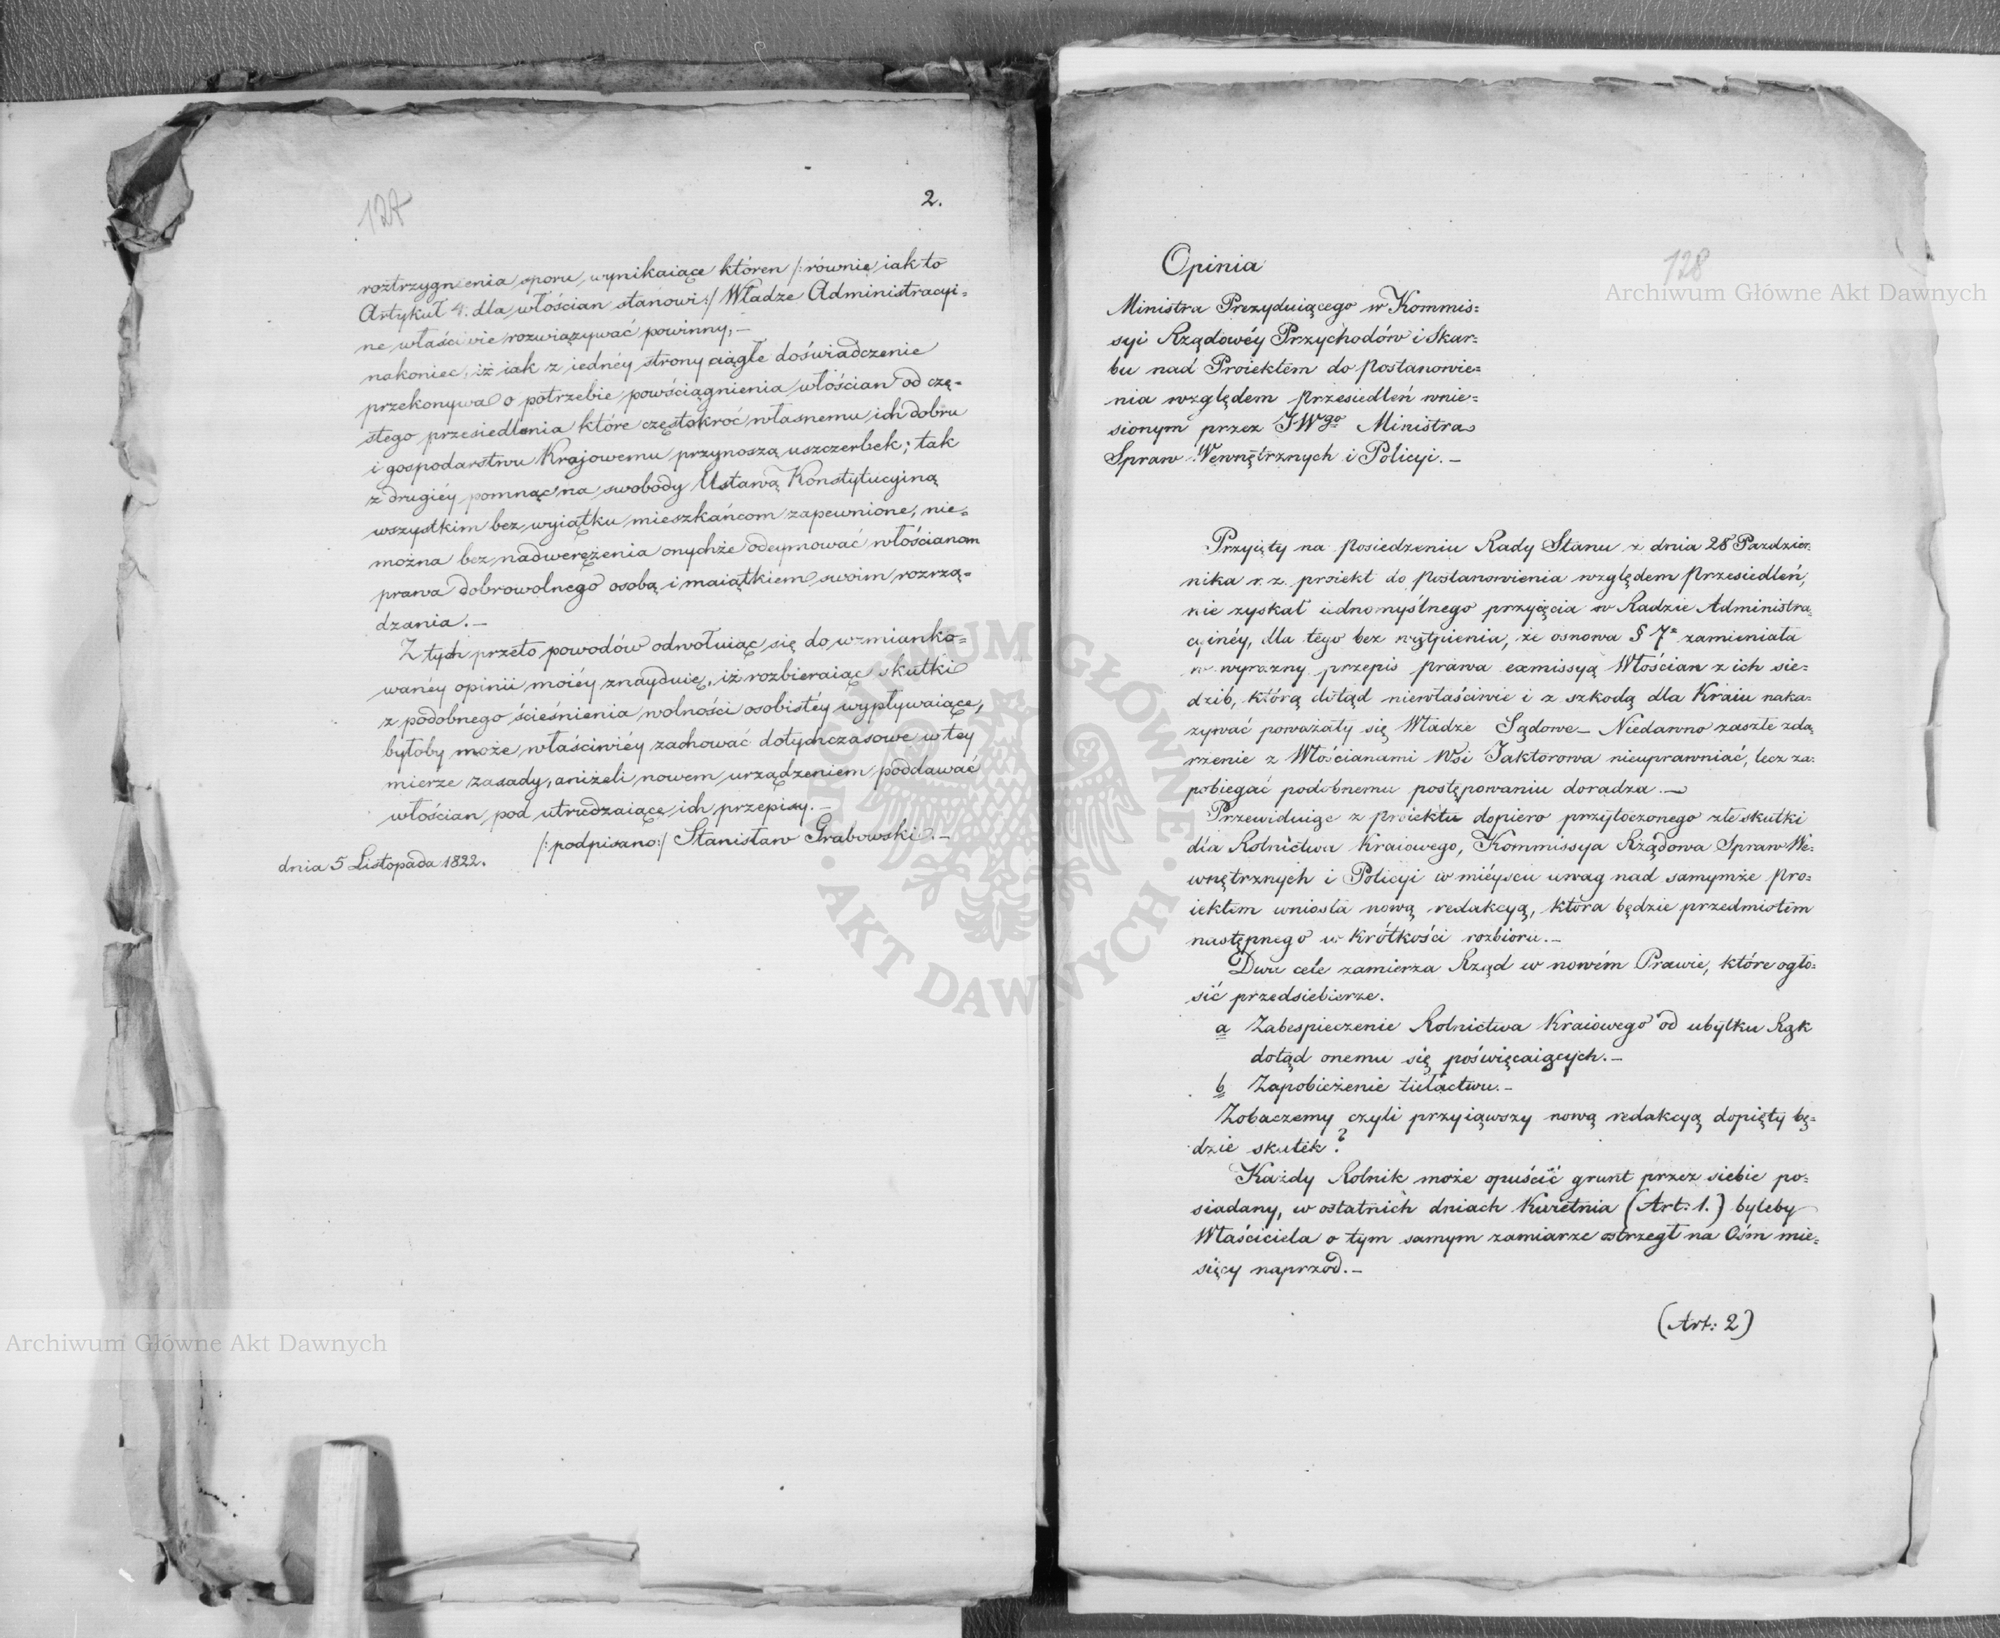 127
2.
roztrzygnienia sporu wynikaiące któren /: równie iak to
Artykuł 4. dla włościan stanowi :/ Władze Administracyi=
ne właściwie rozwiązywać powinny, —
nakoniec, iż iak z iednéy strony ciągłe doświadczenie
przekonywa o potrzebie powściągnienia włościan od czę=
stego przesiedlenia które częstokroć własnemu ich dobru
i gospodarstwu Krajowemu przynoszą uszczerbek; tak
z drugiéy pomnąc na swobody Ustawą Konstytucyiną
wszystkim bez wyiątku mieszkańcom zapewnione, nie=
można bez nadwerężenia onychże odeymować włościanom
prawa dobrowolnego osobą i maiątkiem swoim rozrzą=
dzania. —
Z tych przeto powodów odwołuiąc się do wzmianko=
wanéy opinii moiéy znayduię, iż rozbieraiąc skutki
z podobnego ścieśnienia wolności osobistéy wypływaiące,
byłoby może właściwiéy zachować dotychczasowe w téy
mierze zasady, aniżeli nowem urządzeniem poddawać
włościan pod utrudzaiące ich przepisy. —
/: podpisano :/ Stanisław Grabowski. —
dnia 5 Listopada 1822.
128
Archiwum Główne Akt Dawnych
Opinia
Ministra Prezyduiącego w Kommis=
syi Rządowéy Przychodów i Skar=
bu nad Proiektem do Postanowie=
nia względem przesiedleń wnie=
sionym przez JWgo Ministra
Spraw Wewnętrznych i Policyi. —
Przyięty na posiedzeniu Rady Stanu z dnia 28 Paździer=
nika r. z. proiekt do postanowienia względem Przesiedleń,
nie zyskał iednomyślnego przyięcia w Radzie Administra=
cyinéy, dla tego bez wątpienia, że osnowa § 7º zamieniała
w wyrazny przepis prawa exmissyą Włościan z ich sie=
dzib, którą dotąd niewłaściwie i z szkodą dla Kraiu naka=
zywać poważały się Władze Sądowe — Niedawno zaszłe zda=
rzenie z Włościanami Wsi Jaktorowa nieuprawniać, lecz za=
pobiegać podobnemu postępowaniu doradza. —
Przewiduiąc z proiektu dopiero przytoczonego złe skutki
dla Rolnictwa Kraiowego, Kommissya Rządowa Spraw We=
wnętrznych i Policyi w miéyscu uwag nad samymże pro=
iektem wniosła nową redakcyą, która będzie przedmiotem
następnego w krótkości rozbioru. —
Dwa cele zamierza Rząd w nowém Prawie, które ogło=
sić przedsiebierze.
a Zabespieczenie Rolnictwa Kraiowego od ubytku Rąk
dotąd onemu się poświęcaiących. —
b Zapobieżenie tułactwu. —
Zobaczemy czyli przyiąwszy nową redakcyą dopięty bę=
dzie skutek?
Każdy Rolnik może opuścić grunt przez siebie po=
siadany, w ostatnich dniach Kwietnia (Art: 1.) byleby
Właściciela o tym samym zamiarze ostrzegł na Ośm mie=
sięcy naprzod. —
(Art: 2)
Archiwum Główne Akt Dawnych
ARCHIWUM GŁÓWNE · AKT DAWNYCH ·